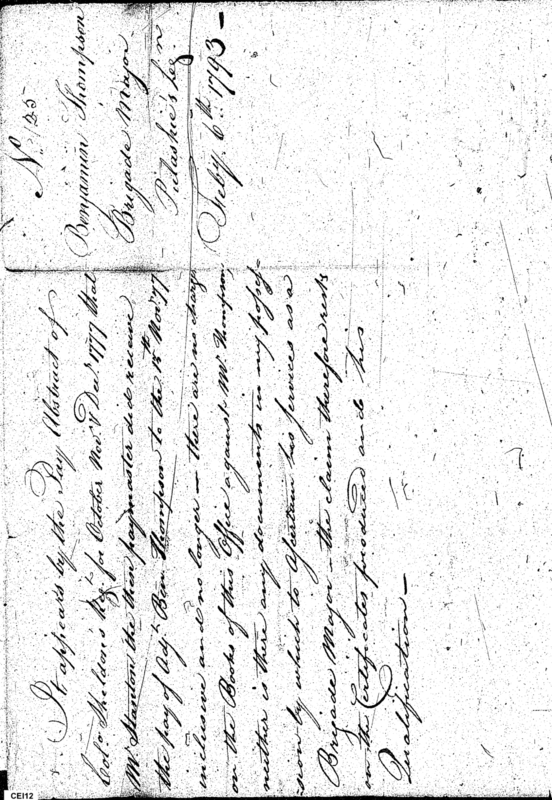 It appears by the Pay Abstract of
Colo. Sheldon's Regt. for October Novr. & Decr. 1777 that
Mr. Stanton the then paymaster did receive
the pay of Adjt. Ben Thompson to the 15th Novr. 77
inclusive and no longer — there are no charges
on the Books of this Office against Mr. Thompson,
neither is there any documents in my posses-
sion by which to ascertain his services as a
Brigade Major — the claim therefore rests
on the Certificates produced and his
Qualification —
No. 125
Benjamin Thompson
Brigade Major
Pulaskie's Leg'n
Feby. 6th. 1793 —
CEI12